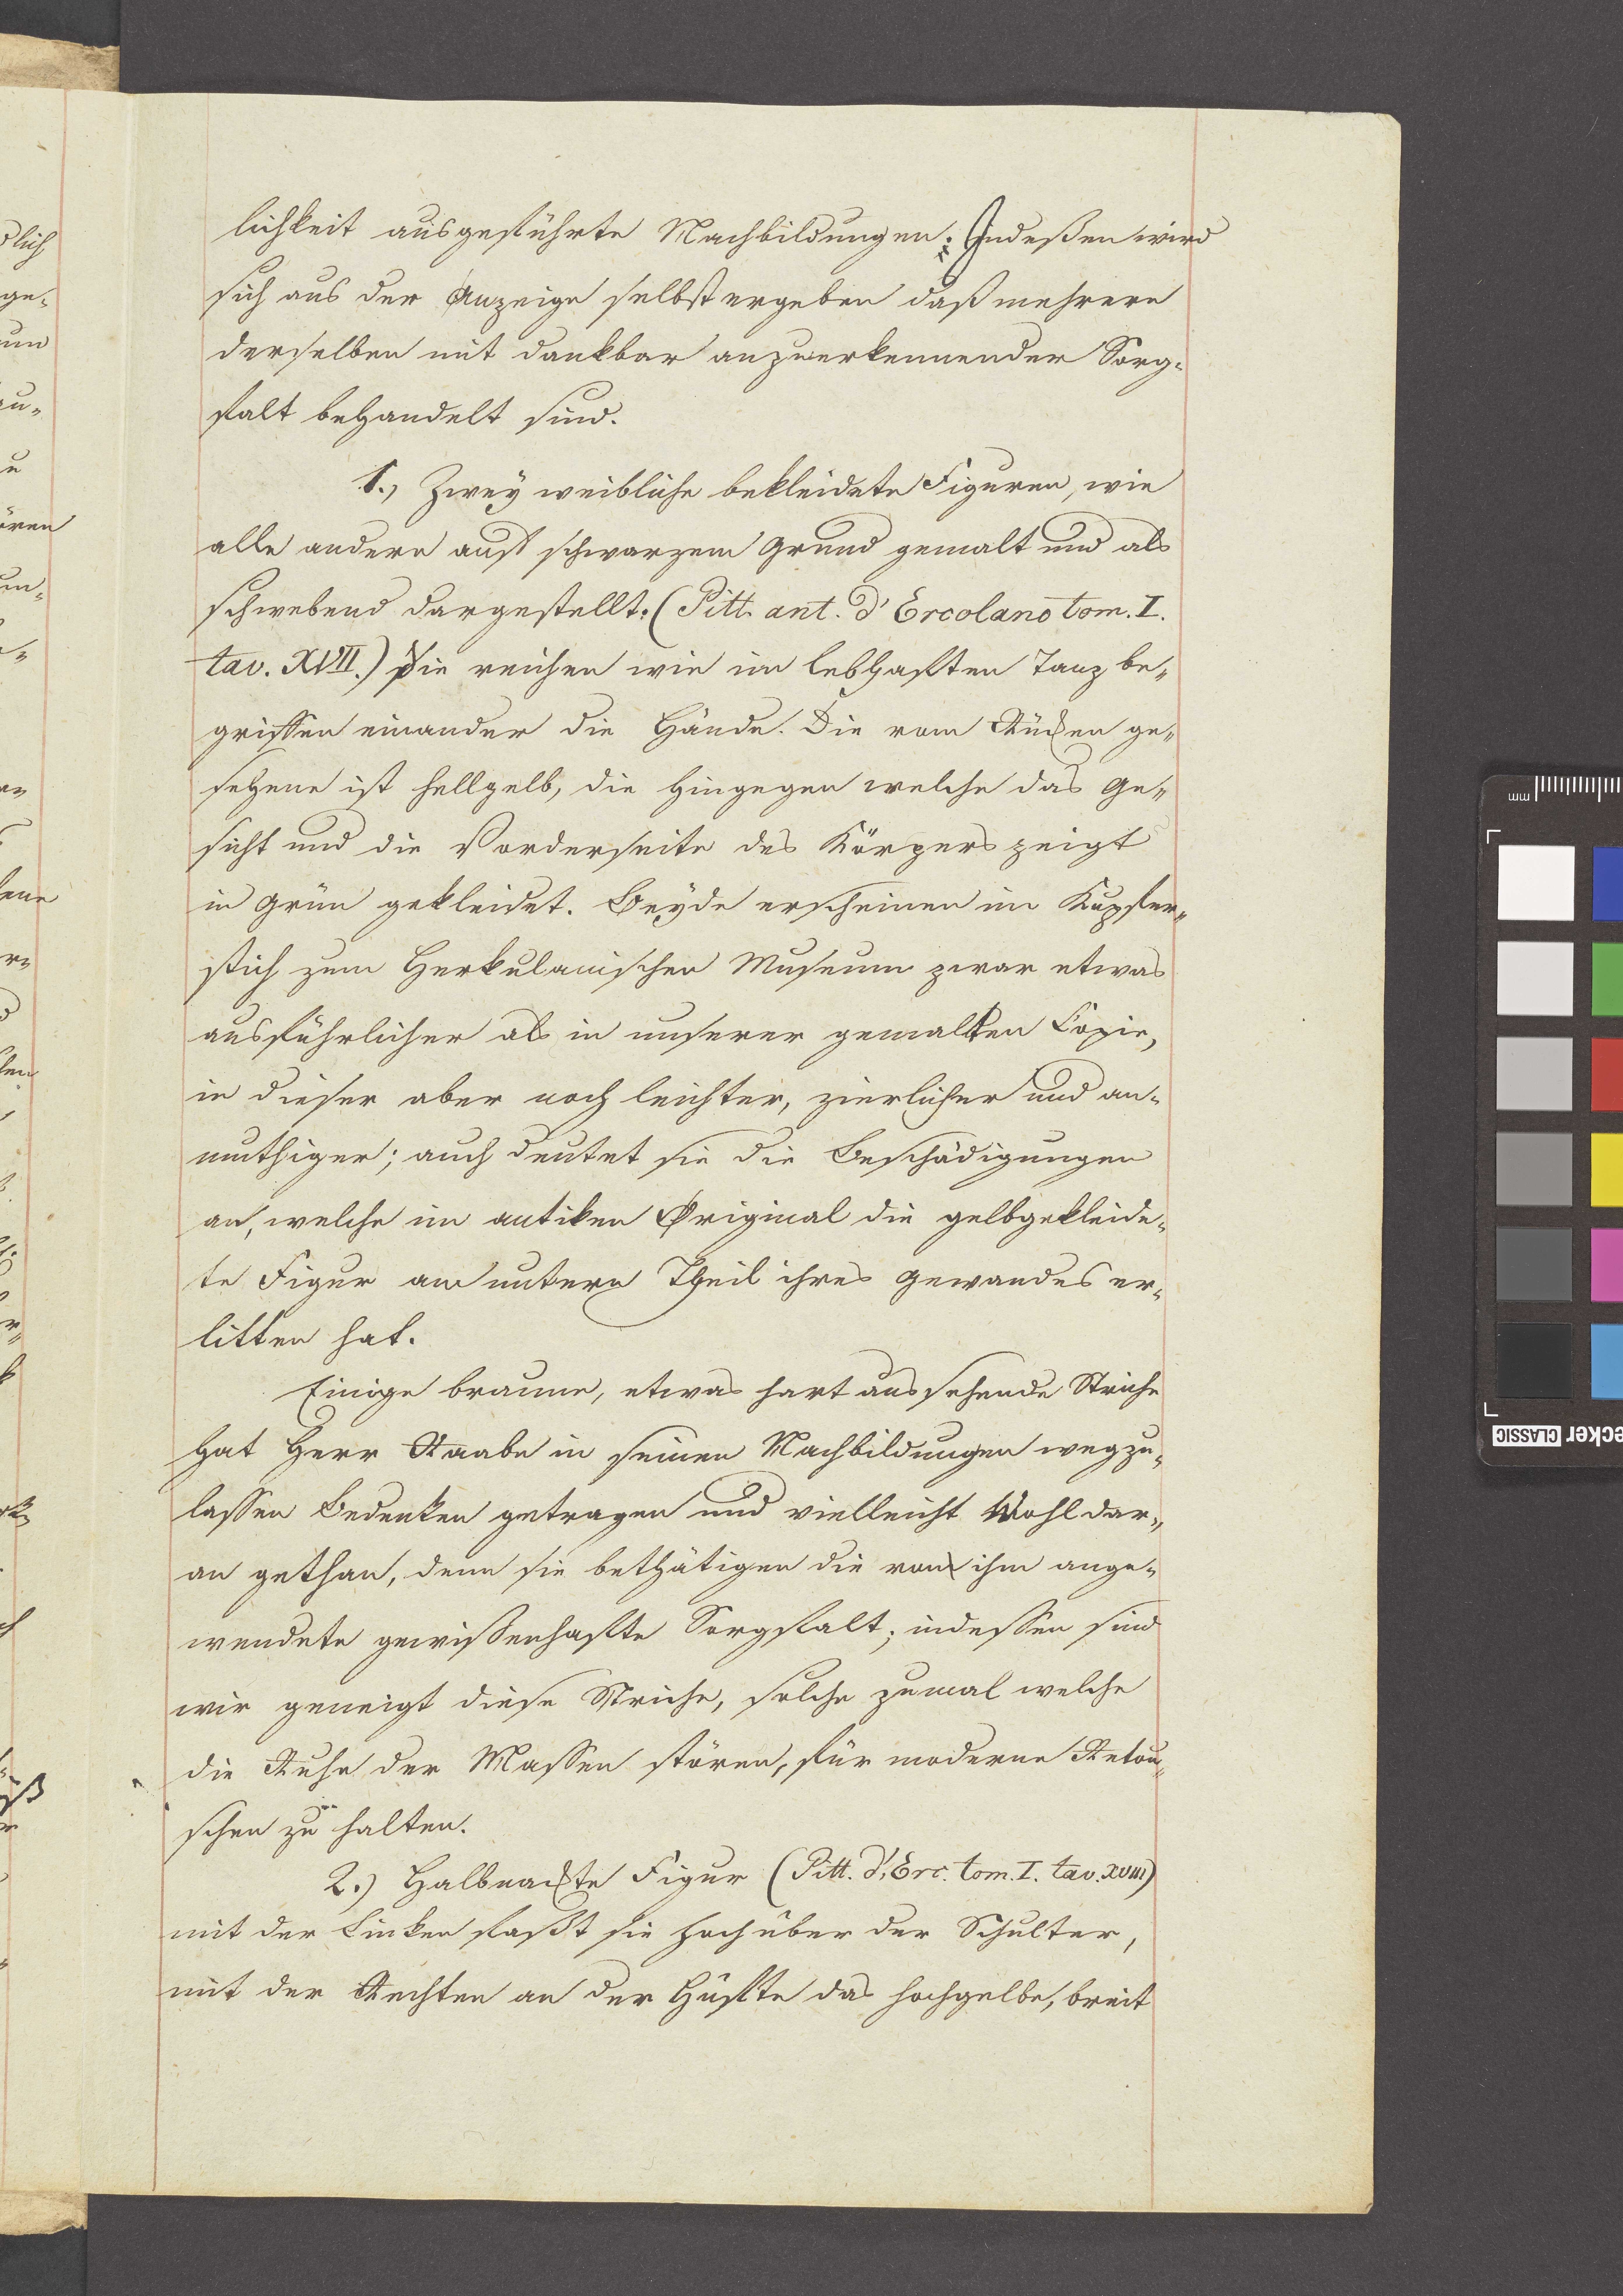 lichkeit ausgeführte Nachbildungen; Indeßen wird
sich aus der Anzeige selbst ergeben daß mehrere
derselben mit dankbar anzuerkennender Sorg-
falt behandelt sind.
1., Zwey weibliche bekleidete Figuren, wie
alle andern auf schwarzem Grund gemalt und als
schwebend dargestellt. (Pitt. ant. d'Ercolano tom. I.
tav. XVII.) Sie reichen wie im lebhaften Tanz be-
griffen einander die Hände. Die vom Rücken ge-
sehene ist hellgelb, die hingegen welche das Ge-
sicht und die Vorderseite des Körpers zeigt
in Grün gekleidet. Beyde erscheinen im Kupfer-
stich zum Herkulanischen Museum zwar etwas
ausführlicher als in unserer gemalten Copie,
in dieser aber noch leichter, zierlicher und an-
muthiger; auch deutet sie die Beschädigungen
an, welche im antiken Original die gelbgekleide-
te Figur am untern Theil ihres Gewandes er-
litten hat.
Einige braune, etwas hart aussehende Striche
hat Herr Raabe in seinen Nachbildungen wegzu-
lassen Bedenken getragen und vielleicht Wohl dar-
an gethan, denn sie bethätigen die von ihm ange-
wendete gewißenhafte Sorgfalt; indessen sind
wir geneigt diese Striche, solche zumal welche
die Ruhe der Massen stören, für moderne Retou-
schen zu halten.
2.) Halbnackte Figur (Pitt. d'Erc. tom. I. tav. XVIII)
mit der Linken faßt sie hoch über der Schulter,
mit der Rechten an der Hüfte das hochgelbe, breit